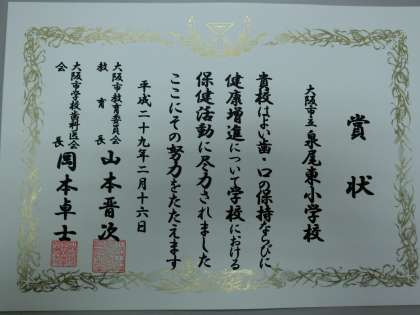 賞状
大阪市立泉尾東小学校
貴校はよい歯・口の保持ならびに
健康増進について学校における
保健活動に尽力されました
ここにその努力をたたえます
平成二十九年二月十六日
大阪市教育委員会
教育長 山本晋次
大阪市学校歯科医会
会長 岡本卓士